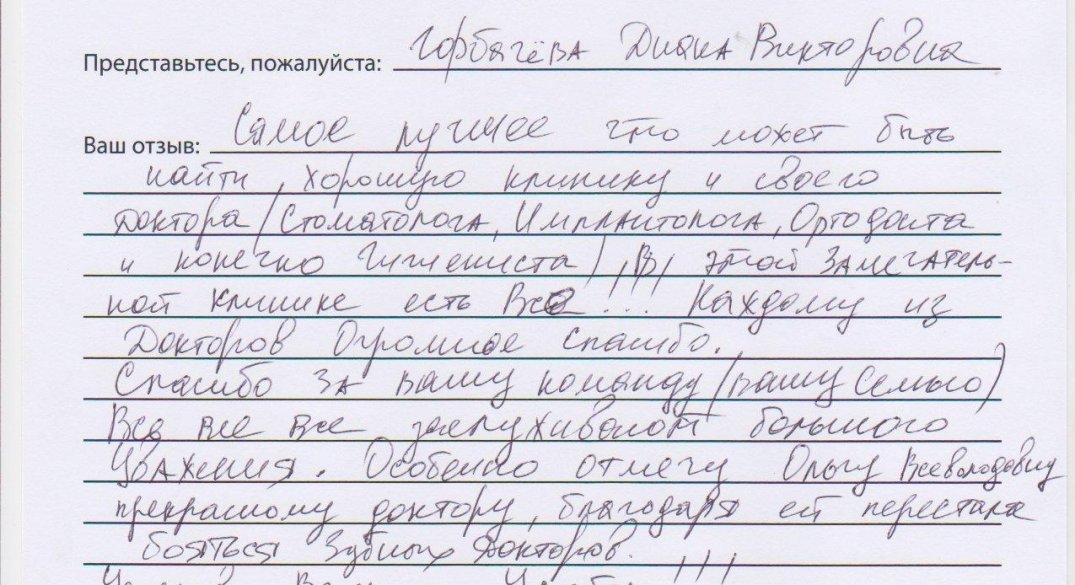 Представьтесь, пожалуйста: Горбачёва Диана Викторовна
Ваш отзыв: Самое лучшее что может быть
найти, хорошую клинику и своего
доктора (Стоматолога, Имплантолога, Ортодонта
и конечно Гигиениста) !!! В этой Замечатель-
ной клинике есть Все!!! Каждому из
Докторов Огромное спасибо.
Спасибо за вашу команду (вашу Семью)
Все все все заслуживают большого
Уважения. Особенно отмечу Ольгу Всеволодовну
прекрасному доктору, благодаря ей перестала
бояться Зубных Докторов. !!!